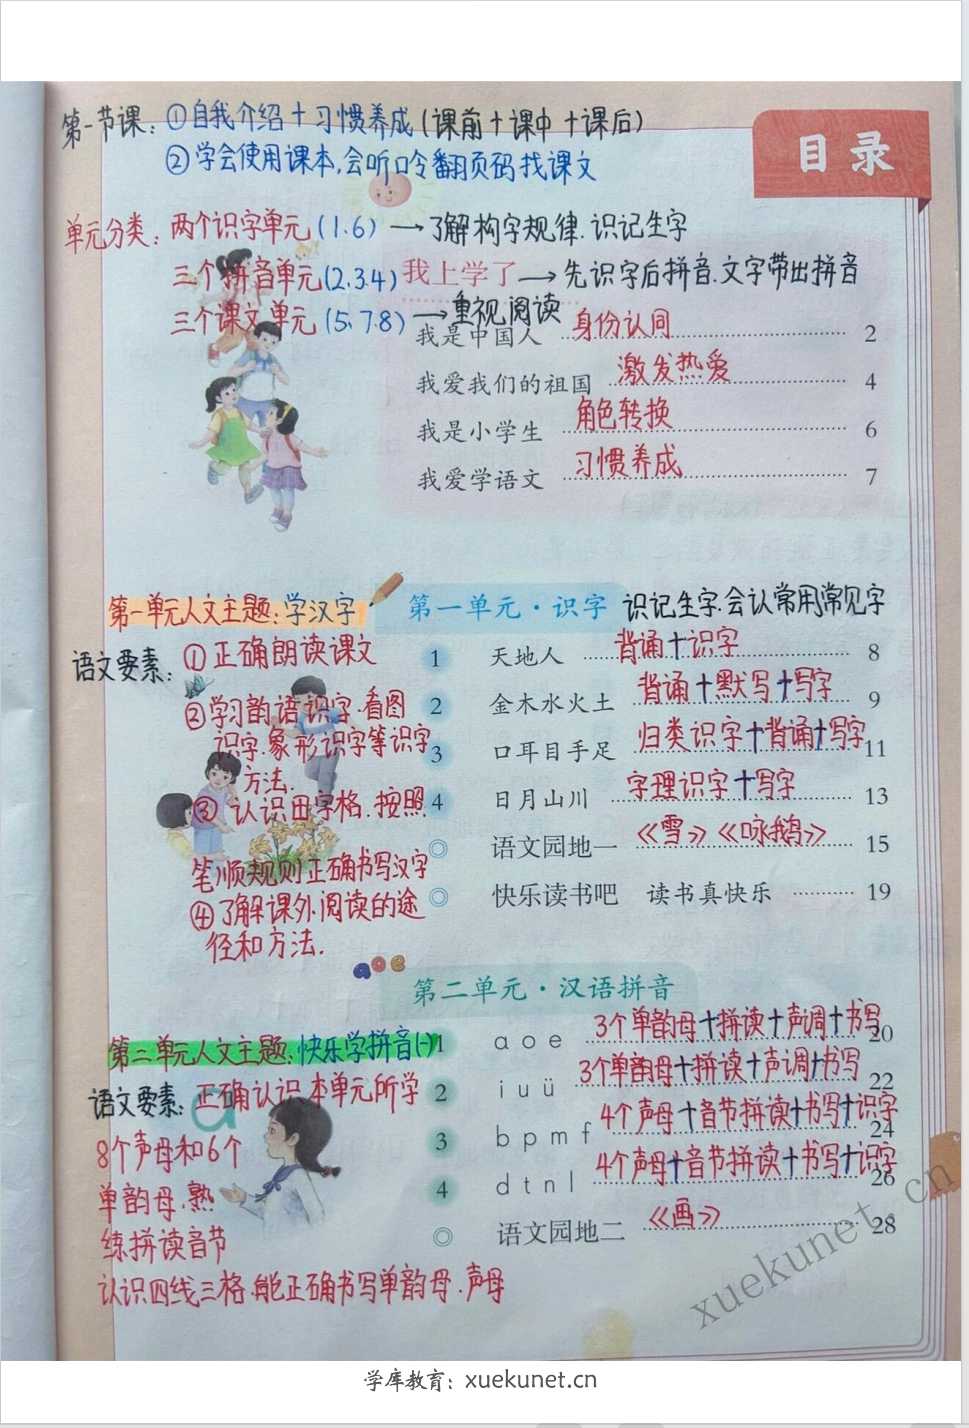 第一节课：①自我介绍＋习惯养成（课前＋课中＋课后）
②学会使用课本,会听口令翻页码找课文
目录
单元分类：两个识字单元(1、6)→了解构字规律.识记生字
三个拼音单元(2.3.4)
我上学了→先识字后拼音.文字带出拼音
三个课文单元(5、7.8)→重视阅读
我是中国人 身份认同 2
我爱我们的祖国 激发热爱 4
我是小学生 角色转换 6
我爱学语文 习惯养成 7
第一单元人文主题：学汉字
第一单元·识字 识记生字.会认常用常见字
语文要素：①正确朗读课文
②学习韵语识字.看图
识字.象形识字等识字
方法.
③认识田字格.按照
笔顺规则正确书写汉字
④了解课外阅读的途
径和方法.
1 天地人 背诵＋识字 8
2 金木水火土 背诵＋默写＋写字 9
3 口耳目手足 归类识字＋背诵＋写字 11
4 日月山川 字理识字＋写字 13
◎ 语文园地一 《雪》《咏鹅》 15
◎ 快乐读书吧 读书真快乐 19
aoe
第二单元·汉语拼音
第二单元人文主题：快乐学拼音(一)
语文要素：正确认识本单元所学
8个声母和6个
单韵母.熟
练拼读音节
认识四线三格.能正确书写单韵母.声母
1 a o e 3个单韵母＋拼读＋声调＋书写 20
2 i u ü 3个单韵母＋拼读＋声调＋书写 22
3 b p m f 4个声母＋音节拼读＋书写＋识字 24
4 d t n l 4个声母＋音节拼读＋书写＋识字 26
◎ 语文园地二 《画》 28
xuekunet.cn
学库教育：xuekunet.cn